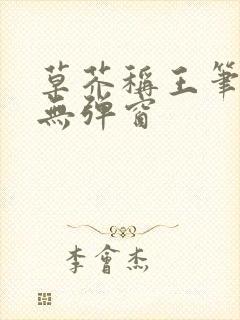 草芥稱王筆
無彈窗
李會杰